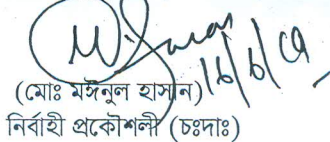 16/6/19
(মোঃ মঈনুল হাসান)
নির্বাহী প্রকৌশলী (চঃদাঃ)